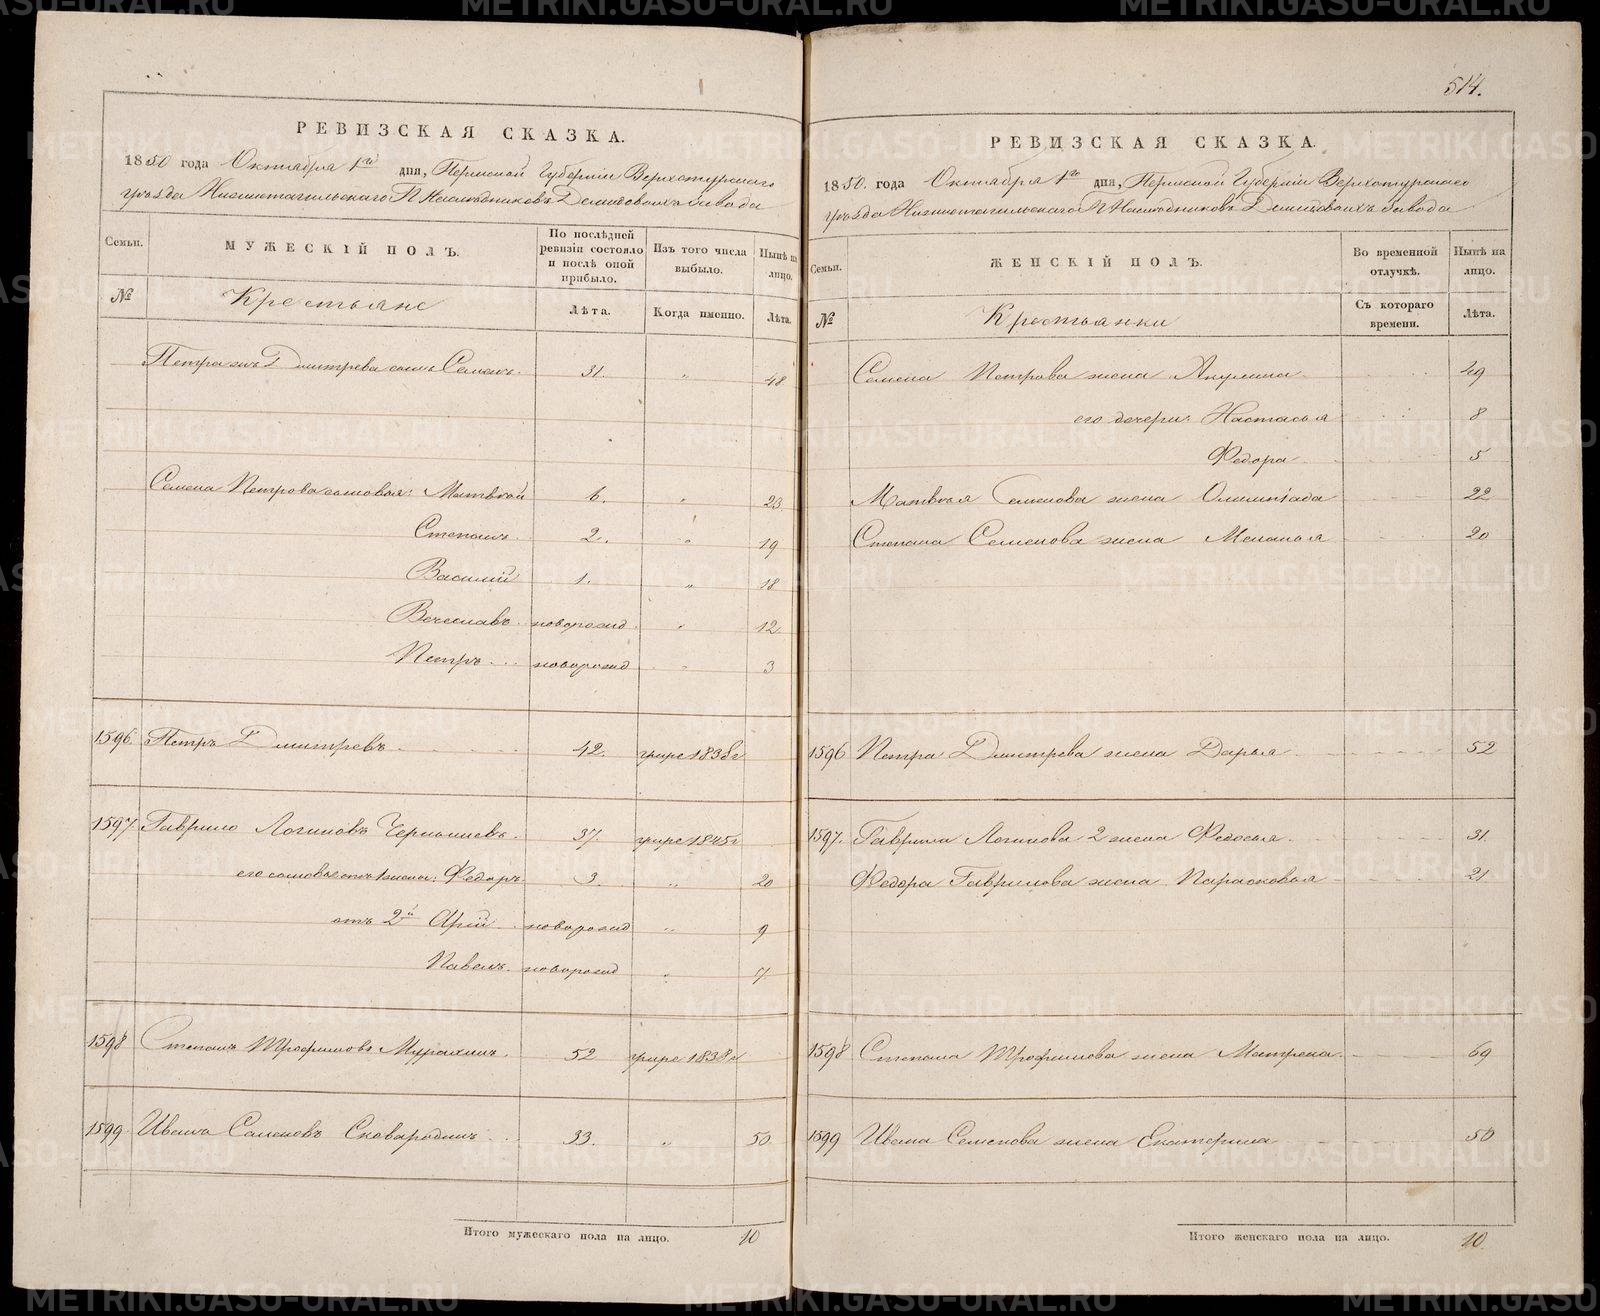 РЕВИЗСКАЯ СКАЗКА.
1850 года Октября 1го дня, Пермской Губерніи Верхотурскаго
уѣзда Нижнетагильскаго Г.г. Наслѣдниковъ Демидовыхъ завода
Семьи. МУЖЕСКІЙ ПОЛЪ. По послѣдней ревизіи состояло и послѣ оной прибыло. Изъ того числа выбыло. Нынѣ на лицо.
№ Крестьяне Лѣта. Когда именно. Лѣта.
Петра Дмитрева сынъ Семенъ. 31. " 48
Семена Петрова сыновья: Матвѣй 6. " 23
Степанъ 2. " 19
Василій 1. " 18
Вячеславъ новорожд. " 12
Петръ новорожд " 3
1596. Петръ Дмитревъ 42. умре 1838 г
1597. Гаврило Логиновъ Чернышевъ 37. умре 1845 г
его сыновья отъ 1 жены: Федоръ 3. " 20
отъ 2й новорожд " 9
Павелъ новорожд " 7
1598 Степанъ Трофимовъ 52 умре 1838 г
1599 Иванъ Семеновъ Сковародинъ 33. " 50
Итого мужескаго пола на лицо. 10
514.
РЕВИЗСКАЯ СКАЗКА.
1850. года Октября 1го дня, Пермской Губерніи Верхотурскаго
уѣзда Нижнетагильскаго Г.г. Наслѣдниковъ Демидовыхъ завода
Семьи. ЖЕНСКІЙ ПОЛЪ. Во временной отлучкѣ. Нынѣ на лицо.
№ Крестьянки Съ котораго времени. Лѣта.
Семена Петрова жена Акулина 49
его дочери: Настасья 8
Федора 5
Матвѣя Семенова жена Олимпіада 22
Степана Семенова жена Меланья 20
1596 Петра Дмитрева жена Дарья 52
1597. Гаврила Логинова 2 жена Федосья 31.
Федора Гаврилова жена Парасковья 21
1598 Степана Трофимова жена Матрена 69
1599 Ивана Семенова жена Екатерина 50
Итого женскаго пола на лицо. 10.
METRIKI.GASO-URAL.RU